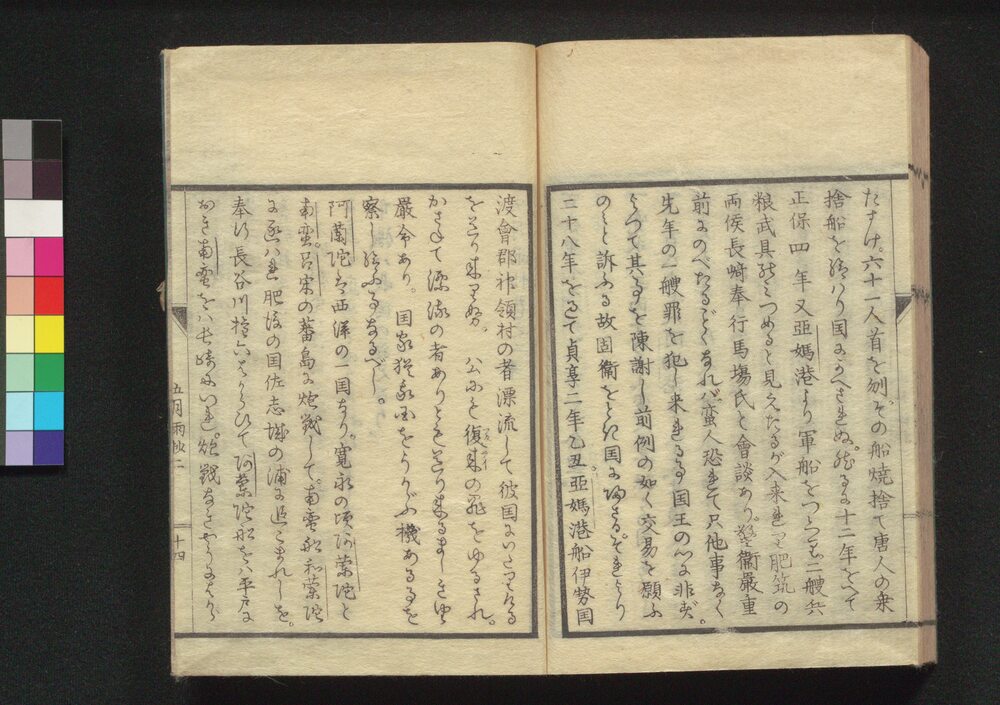 たすけ。六十一人首を刎。その船焼捨て唐人の乗
捨船を給ハり国にかへされぬ。然るに十二年をへて
正保四年又亜媽港より軍船をつくろひ二艘兵
粮武具をつめると見えたるが入来れり肥筑の
両侯長崎奉行馬場氏と會談あり。警衛厳重
前にのべたるごとくなれバ蛮人恐れて只他事なく
先年の一艘罪を犯し来れる事国王の心に非ず。
よつて其事を陳謝し前例の如く交易を願ふ
のと訴ふる故固衛をとき国に帰さる。それより
三十八年を過て貞享二年乙丑。亜媽港船伊勢国
渡會郡神領村の者漂流して彼国にいたりける
を送り来りぬ。公にも復来の罪をゆるされ。
かさねて漂流の者ありとも送り来るまじきむね
厳令あり。国家をうかゞふ機あるを
察し給ふなるべし。
阿蘭陀ハ西洋の一国なり。寛永の頃阿蘭陀と
南蛮。呂宋の蕃島に炮戦して。南蛮船和蘭陀
に逐ハれ肥後の国佐志城の浦に追こまれしを。
奉行長谷川権六はからひて阿蘭陀船をハ平戸に
おき南蛮をハ長崎にいれ。炮戦なさやうに
五月雨抄二
十四